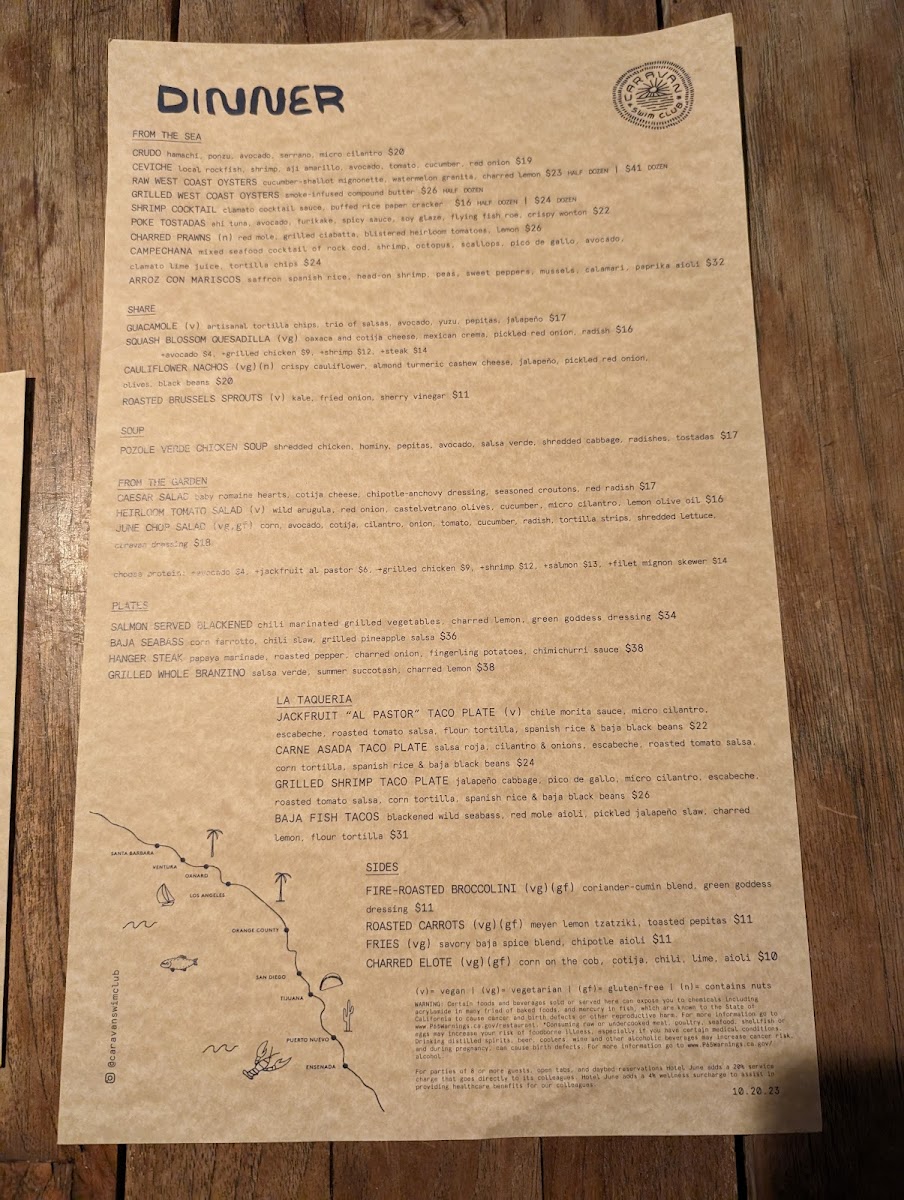 DINNER
CARAVAN
SWIM CLUB
FROM THE SEA
CRUDO hamachi, ponzu, avocado, serrano, micro cilantro $20
CEVICHE local rockfish, shrimp, aji amarillo, avocado, tomato, cucumber, red onion $19
RAW WEST COAST OYSTERS cucumber-shallot mignonette, watermelon granita, charred lemon $23 HALF DOZEN | $41 DOZEN
GRILLED WEST COAST OYSTERS smoke-infused compound butter $26 HALF DOZEN
SHRIMP COCKTAIL clamato cocktail sauce, puffed rice paper cracker $16 HALF DOZEN | $24 DOZEN
POKE TOSTADAS ahi tuna, avocado, furikake, spicy sauce, soy glaze, flying fish roe, crispy wonton $22
CHARRED PRAWNS (n) red mole, grilled ciabatta, blistered heirloom tomatoes, lemon $26
CAMPECHANA mixed seafood cocktail of rock cod, shrimp, octopus, scallops, pico de gallo, avocado,
clamato lime juice, tortilla chips $24
ARROZ CON MARISCOS saffron spanish rice, head-on shrimp, peas, sweet peppers, mussels, calamari, paprika aioli $32
SHARE
GUACAMOLE (v) artisanal tortilla chips, trio of salsas, avocado, yuzu, pepitas, jalapeño $17
SQUASH BLOSSOM QUESADILLA (vg) oaxaca and cotija cheese, mexican crema, pickled red onion, radish $16
+avocado $4, +grilled chicken $9, +shrimp $12, +steak $14
CAULIFLOWER NACHOS (vg)(n) crispy cauliflower, almond turmeric cashew cheese, jalapeño, pickled red onion,
olives, black beans $20
ROASTED BRUSSELS SPROUTS (v) kale, fried onion, sherry vinegar $11
SOUP
POZOLE VERDE CHICKEN SOUP shredded chicken, hominy, pepitas, avocado, salsa verde, shredded cabbage, radishes, tostadas $17
FROM THE GARDEN
CAESAR SALAD baby romaine hearts, cotija cheese, chipotle-anchovy dressing, seasoned croutons, red radish $17
HEIRLOOM TOMATO SALAD (v) wild arugula, red onion, castelvetrano olives, cucumber, micro cilantro, lemon olive oil $16
JUNE CHOP SALAD (vg,gf) corn, avocado, cotija, cilantro, onion, tomato, cucumber, radish, tortilla strips, shredded lettuce,
caravan dressing $18
choose protein: +avocado $4, +jackfruit al pastor $6, +grilled chicken $9, +shrimp $12, +salmon $13, +filet mignon skewer $14
PLATES
SALMON SERVED BLACKENED chili marinated grilled vegetables, charred lemon, green goddess dressing $34
BAJA SEABASS corn farrotto, chili slaw, grilled pineapple salsa $36
HANGER STEAK papaya marinade, roasted pepper, charred onion, fingerling potatoes, chimichurri sauce $38
GRILLED WHOLE BRANZINO salsa verde, summer succotash, charred lemon $38
LA TAQUERIA
JACKFRUIT "AL PASTOR" TACO PLATE (v) chile morita sauce, micro cilantro,
escabeche, roasted tomato salsa, flour tortilla, spanish rice & baja black beans $22
CARNE ASADA TACO PLATE salsa roja, cilantro & onions, escabeche, roasted tomato salsa,
corn tortilla, spanish rice & baja black beans $24
GRILLED SHRIMP TACO PLATE jalapeño cabbage, pico de gallo, micro cilantro, escabeche,
roasted tomato salsa, corn tortilla, spanish rice & baja black beans $26
BAJA FISH TACOS blackened wild seabass, red mole aioli, pickled jalapeño slaw, charred
lemon, flour tortilla $31
SANTA BARBARA
VENTURA
OXNARD
LOS ANGELES
ORANGE COUNTY
SAN DIEGO
TIJUANA
PUERTO NUEVO
ENSENADA
@caravanswimclub
SIDES
FIRE-ROASTED BROCCOLINI (vg)(gf) coriander-cumin blend, green goddess
dressing $11
ROASTED CARROTS (vg)(gf) meyer lemon tzatziki, toasted pepitas $11
FRIES (vg) savory baja spice blend, chipotle aioli $11
CHARRED ELOTE (vg)(gf) corn on the cob, cotija, chili, lime, aioli $10
(v)= vegan | (vg)= vegetarian | (gf)= gluten-free | (n)= contains nuts
WARNING: Certain foods and beverages sold or served here can expose you to chemicals including
acrylamide in many fried of baked foods, and mercury in fish, which are known to the State of
California to cause cancer and birth defects or other reproductive harm. For more information go to
www.P65Warnings.ca.gov/restaurant. *Consuming raw or undercooked meat, poultry, seafood, shellfish or
eggs may increase your risk of foodborne illness, especially if you have certain medical conditions.
Drinking distilled spirits, beer, coolers, wine and other alcoholic beverages may increase cancer risk,
and during pregnancy, can cause birth defects. For more information go to www.P65Warnings.ca.gov/
alcohol.
For parties of 6 or more guests, open tabs, and daybed reservations Hotel June adds a 20% service
charge that goes directly to its colleagues. Hotel June adds a 4% wellness surcharge to assist in
providing healthcare benefits for our colleagues.
10.20.23